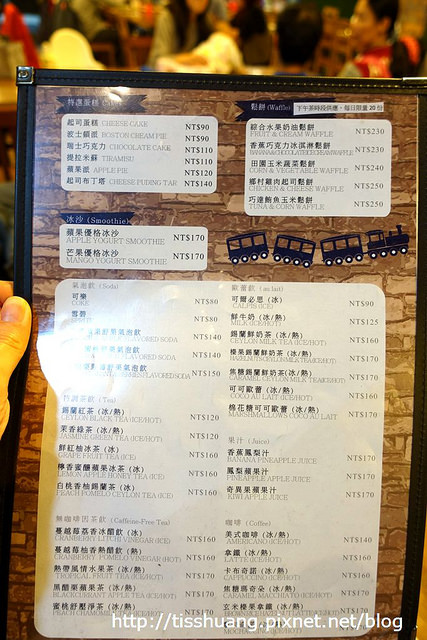 特選蛋糕
起司蛋糕 CHEESE CAKE NT$90
波士頓派 BOSTON CREAM PIE NT$90
瑞士巧克力 CHOCOLATE CAKE NT$110
提拉米蘇 TIRAMISU NT$110
蘋果派 APPLE PIE NT$120
起司布丁塔 CHEESE PUDING TAR NT$140
鬆餅 (Waffle) 下午茶時段供應，每日限量 20 份
綜合水果奶油鬆餅 NT$230
FRUIT & CREAM WAFFLE
香蕉巧克力冰淇淋鬆餅 NT$230
田園玉米蔬菜鬆餅 NT$240
CORN & VEGETABLE WAFFLE
鄉村雞肉起司鬆餅 NT$250
CHICKEN & CHEESE WAFFLE
巧達鮪魚玉米鬆餅 NT$250
TUNA & CORN WAFFLE
冰沙 (Smoothie)
蘋果優格冰沙 NT$170
APPLE YOGURT SMOOTHIE
芒果優格冰沙 NT$170
MANGO YOGURT SMOOTHIE
氣泡飲 (Soda)
可樂 NT$80
COKE
雪碧 NT$80
NT$140
FLAVORED SODA
NT$140
FLAVORED SODA
NT$150
錫蘭紅茶 (冰/熱) NT$120
CEYLON BLACK TEA (ICE/HOT)
茉香綠茶 (冰/熱) NT$120
JASMINE GREEN TEA (ICE/HOT)
鮮紅柚冰茶 (冰) NT$160
GRAPE FRUIT TEA (ICE)
檸香蜜釀蘋果冰茶 (冰) NT$160
LEMON APPLE HONEY TEA (ICE)
白桃香柚錫蘭茶 (冰) NT$160
PEACH POMELO CEYLON TEA (ICE)
無咖啡因茶飲 (Caffeine-Free Tea)
蔓越莓荔香冰醋飲 (冰) NT$160
CRANBERRY LITCHI VINEGAR (ICE)
蔓越莓柚香熱醋飲 (熱) NT$160
CRANBERRY POMELO VINEGAR (HOT)
熱帶風情水果茶 (冰/熱) NT$170
TROPICAL FRUIT TEA (ICE/HOT)
黑醋栗蘋果茶 (冰/熱) NT$170
BLACKCURRANT APPLE TEA (ICE/HOT)
蜜桃舒壓淨茶 (冰/熱)
歐蕾飲 (au lait)
可爾必思 (冰) NT$90
CALPIS (ICE)
鮮牛奶 (冰/熱) NT$125
MILK (ICE/HOT)
錫蘭鮮奶茶 (冰/熱) NT$160
CEYLON MILK TEA (ICE/HOT)
榛果錫蘭鮮奶茶 (冰/熱) NT$170
焦糖錫蘭鮮奶茶 (冰/熱) NT$170
CARAMEL CEYLON MILK TEA (ICE/HOT)
可可歐蕾 (冰/熱) NT$160
COCO AU LAIT (ICE/HOT)
棉花糖可可歐蕾 (冰/熱) NT$170
MARSHMALLOWS COCO AU LAIT
果汁 (Juice)
香蕉鳳梨汁 NT$170
BANANA PINEAPPLE JUICE
鳳梨蘋果汁 NT$170
PINEAPPLE APPLE JUICE
奇異果蘋果汁 NT$170
KIWI APPLE JUICE
咖啡 (Coffee)
美式咖啡 (冰/熱) NT$140
AMERICANO (ICE/HOT)
拿鐵 (冰/熱) NT$160
LATTE (ICE/HOT)
卡布奇諾 (冰/熱) NT$160
CAPPUCCINO (ICE/HOT)
焦糖瑪奇朵 (冰/熱) NT$170
CARAMEL MACCHIATO (ICE/HOT)
玄米榛果拿鐵 (冰/熱) NT$170
http://tisshuang.pixnet.net/blog